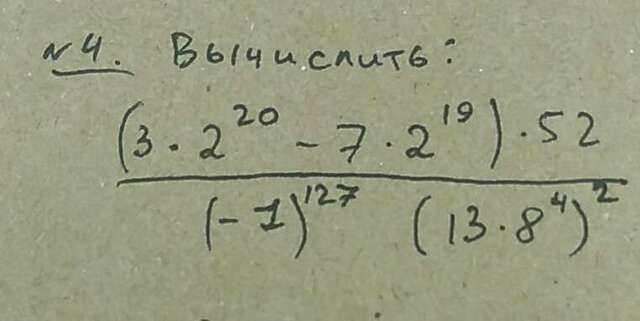 №4. Вычислить:
(3 · 2²⁰ - 7 · 2¹⁹) · 52
(-1)¹²⁷ (13 · 8⁴)²